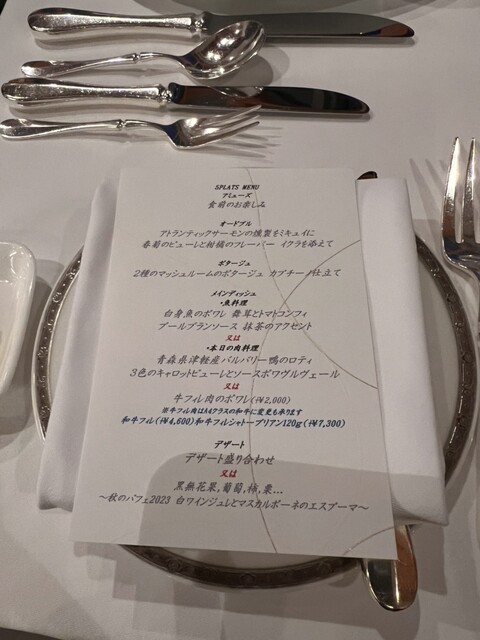 5PLATS MENU
アミューズ
食前のお楽しみ
オードブル
アトランティックサーモンの燻製をミキュイに
春菊のピューレと柑橘のフレーバー イクラを添えて
ポタージュ
2種のマッシュルームのポタージュ カプチーノ仕立て
メインディッシュ
・魚料理
白身魚のポワレ 舞茸とトマトコンフィ
ブールブランソース 抹茶のアクセント
又は
・本日の肉料理
青森県津軽産バルバリー鴨のロティ
3色のキャロットピューレとソースポワヴルヴェール
又は
牛フィレ肉のポワレ(+¥2,000)
※牛フィレ肉はA4クラスの和牛に変更も承ります
和牛フィレ(+¥4,600)和牛フィレシャトーブリアン120g(+¥7,300)
デザート
デザート盛り合わせ
又は
黒無花果,葡萄,柿,栗...
～秋のパフェ2023 白ワインジュレとマスカルポーネのエスプーマ～